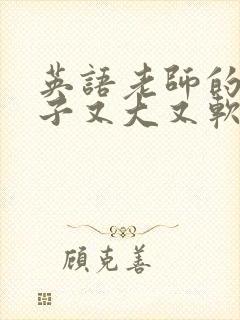 英語老師的
子又大又軟
顧克善